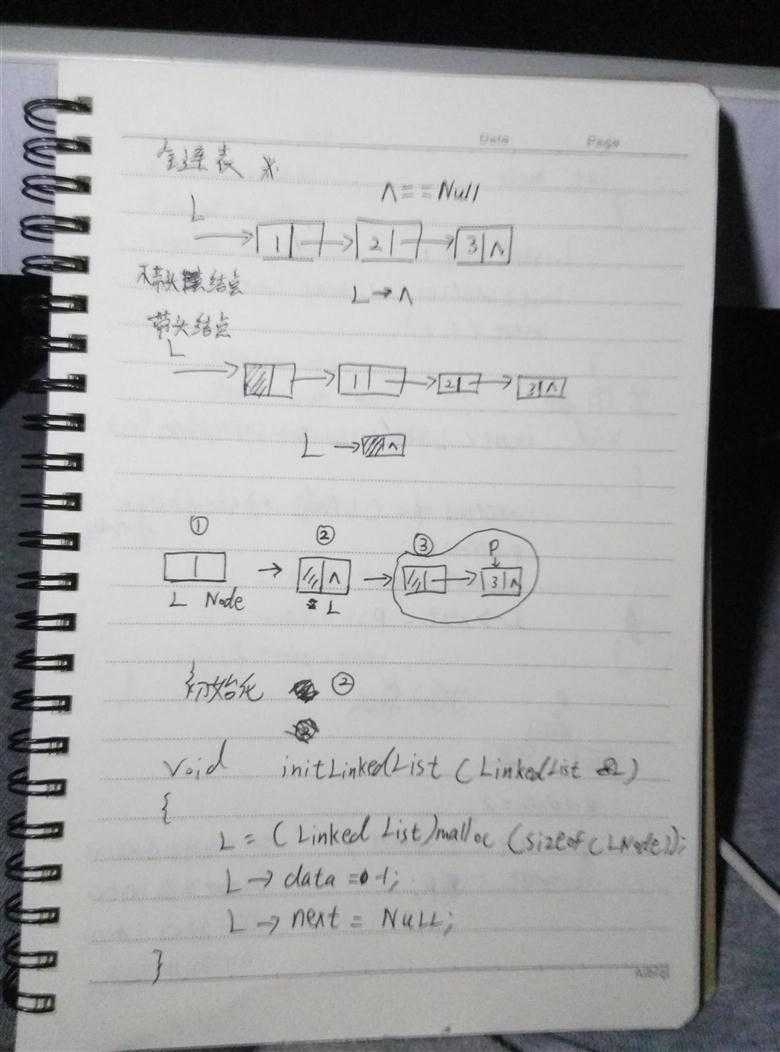 Data Page
链表 ※
Λ == Null
L
1 2 3 Λ
不带头结点 L→Λ
带头结点
L
1 2 3 Λ
L → Λ
① ② ③ P
Λ 3 Λ
L Node L
初始化 ②
void initLinkedList (LinkedList &L)
{
L = (Linked List)malloc (sizeof(LNode));
L → data = -1;
L → next = NULL;
}